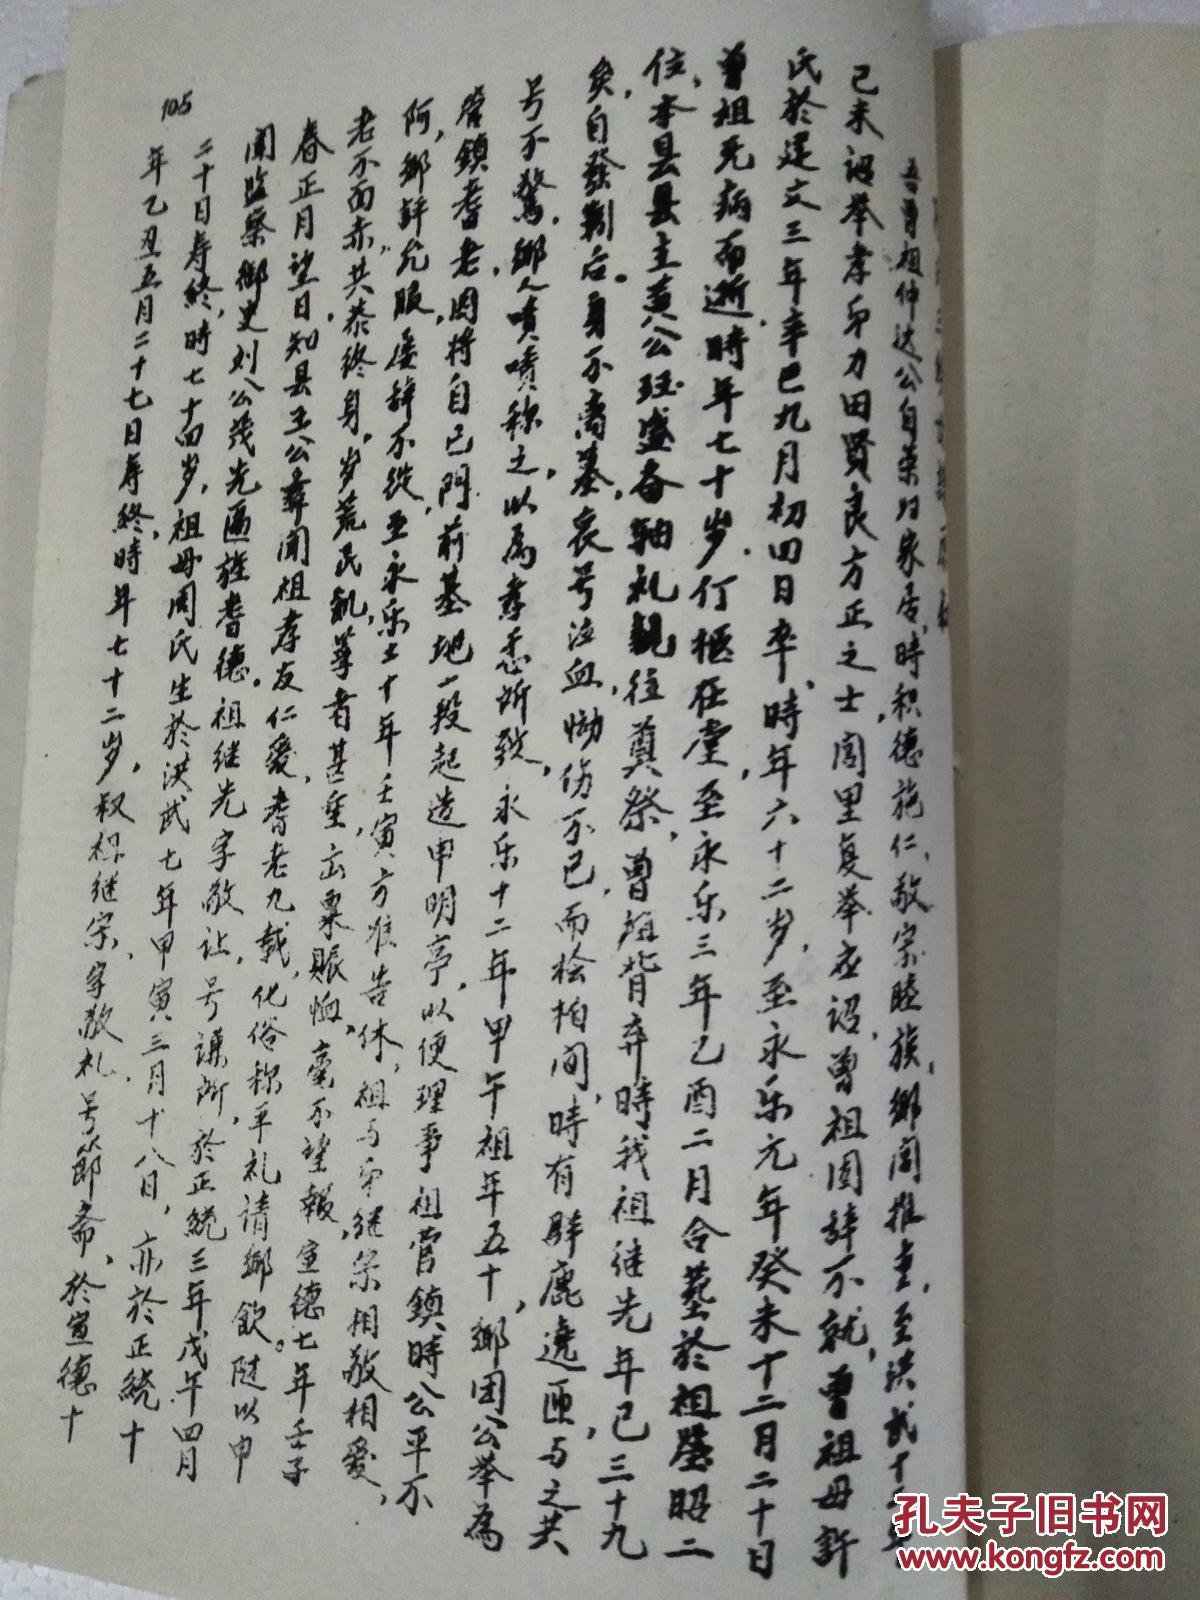 吾曾祖仲达公自荣归家居,時积德施仁、敬宗睦族,鄉閭推重,至洪武十二年
己未詔举孝弟力田賢良方正之士,閭里复举应詔,曾祖固辞不就,曾祖母許
氏於建文三年辛巳九月初四日卒,時年六十二岁,至永乐元年癸未十二月二十日
曾祖无病而逝,時年七十岁,停柩在堂,至永乐三年乙酉二月合墓於祖塋昭二
位,本县县主黄公珏盛备軸礼親往奠祭,曾祖背弃時我祖继先年已三十九
矣,自發靷后。身不离墓,哀号泣血,恸伤不已,而桧柏间,時有駢鹿遶匝,与之共
号不驚,鄉人啧啧称之,以為孝悫所致,永乐十二年甲午祖年五十,鄉团公举為
營鎮耆老,因将自己門前基地一段起造申明亭,以便理事,祖营鎮時公平不
阿,鄉評允服,屡辞不從,至永乐二十年壬寅方准告休,祖与弟继宗相敬相爱,
老不面赤,共恭终身,岁荒民飢,尊者甚重,出粟賑恤,毫不望報,宣德七年壬子
春正月望日知县王公彝闻祖孝友仁爱,耆老九载,化俗称平,礼請鄉飲。陡以申
闻监察御史刘公茂先匾旌耆德。祖继先字敬让,号謙所,於正統三年戊午四月
二十日寿終,時七十四岁,祖母周氏生於洪武七年甲寅三月十八日,亦於正統十
年乙丑五月二十七日寿終,時年七十二岁,叔祖继宗,字敬礼,号節斋,於宣德十
105
孔夫子旧书网
www.kongfz.com